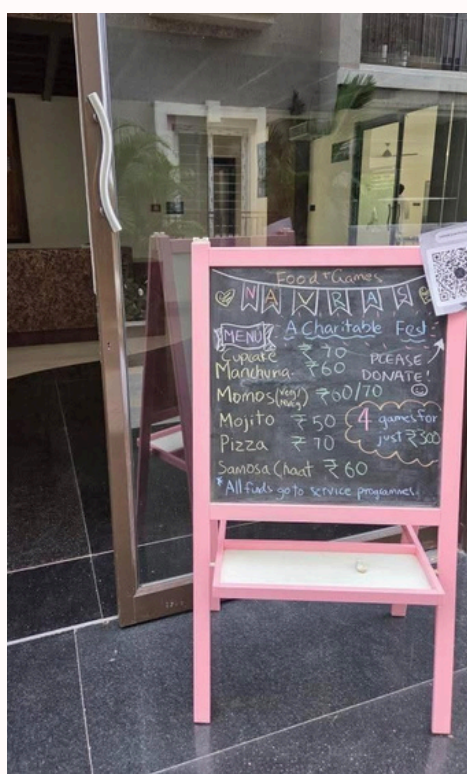 Food + Games
NAVRAS
A Charitable Fest
MENU
Cupcake ₹70
Manchuria ₹60
PLEASE DONATE!
Momos (veg/ nonveg) ₹60/70
Mojito ₹50
4 games for just ₹300
Pizza ₹70
Samosa Chaat ₹60
*All funds go to service programmes!